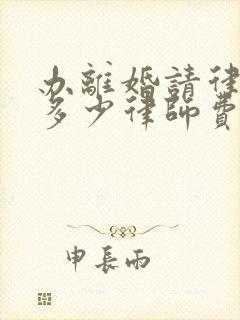 办離婚請律
多少律師費
申長雨